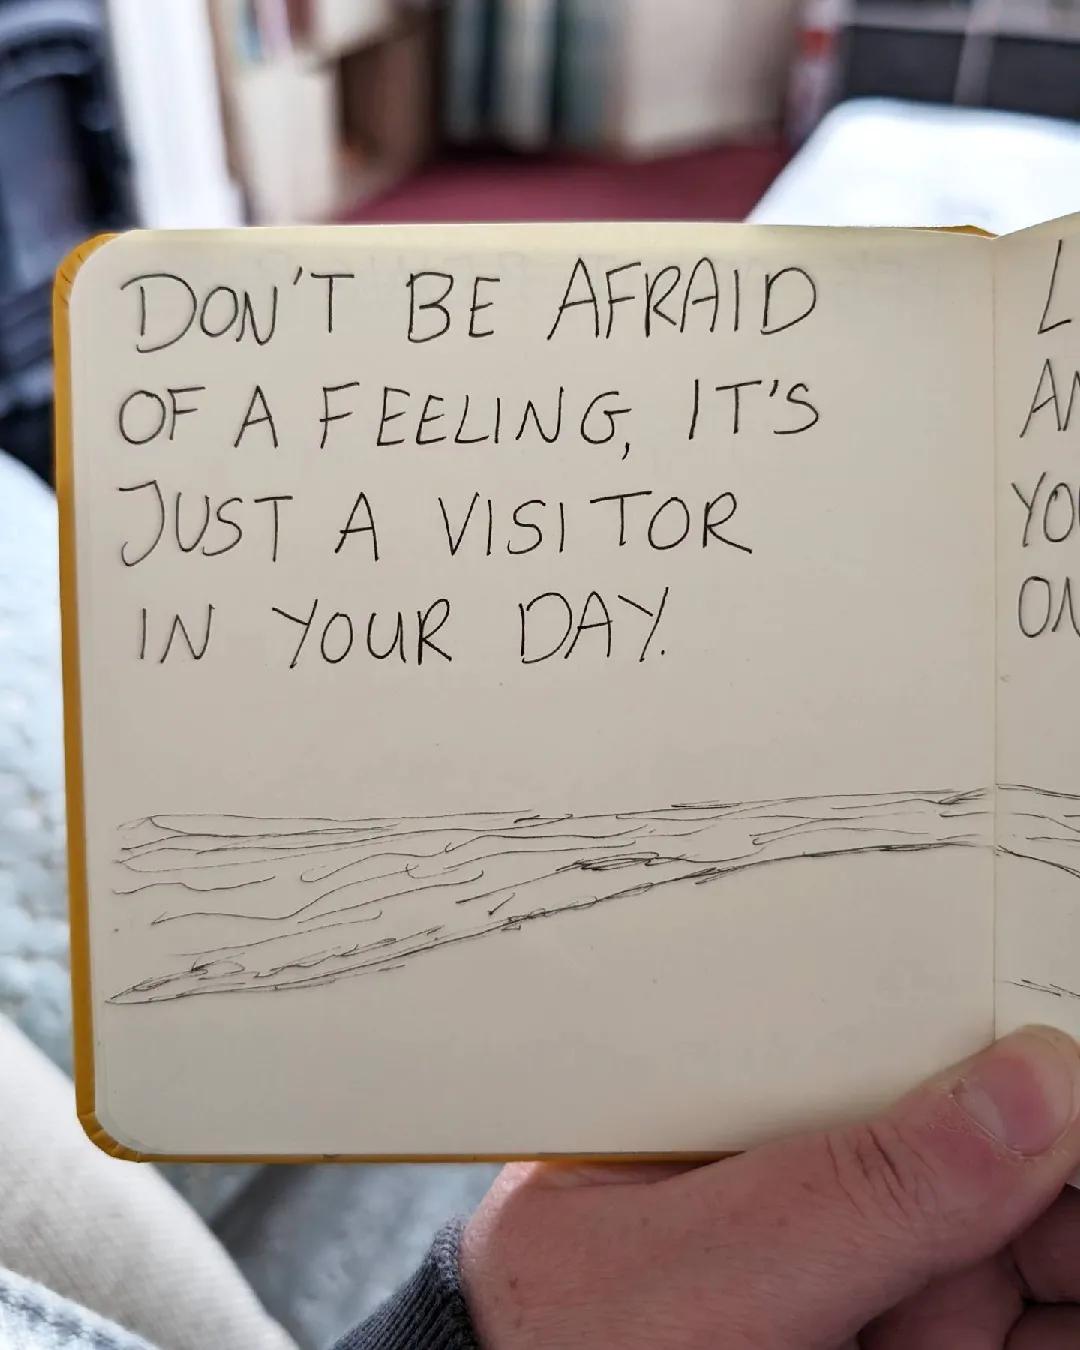 DON'T BE AFRAID
OF A FEELING, IT'S
JUST A VISITOR
IN YOUR DAY.